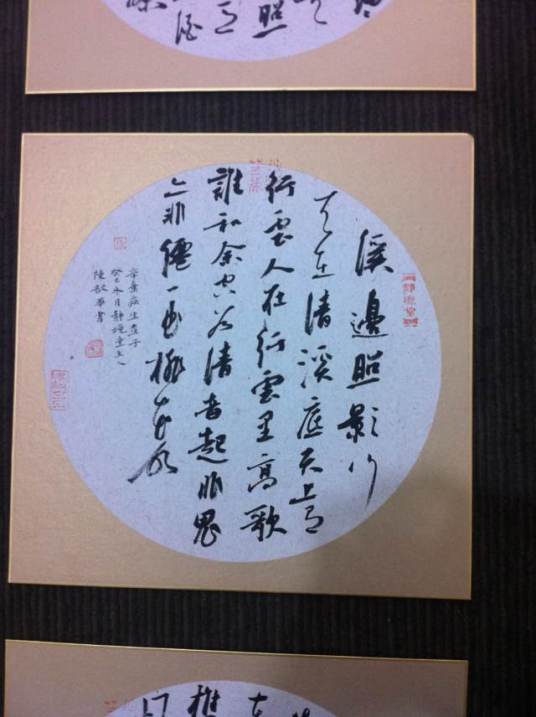 照
酒
溪邊照影行
天在清溪底天上有
行雲人在行雲里高歌
誰和余空谷清音起非鬼
亦非僊一曲桃花水
辛棄疾生查子
癸巳冬月靜堂主人
陳書